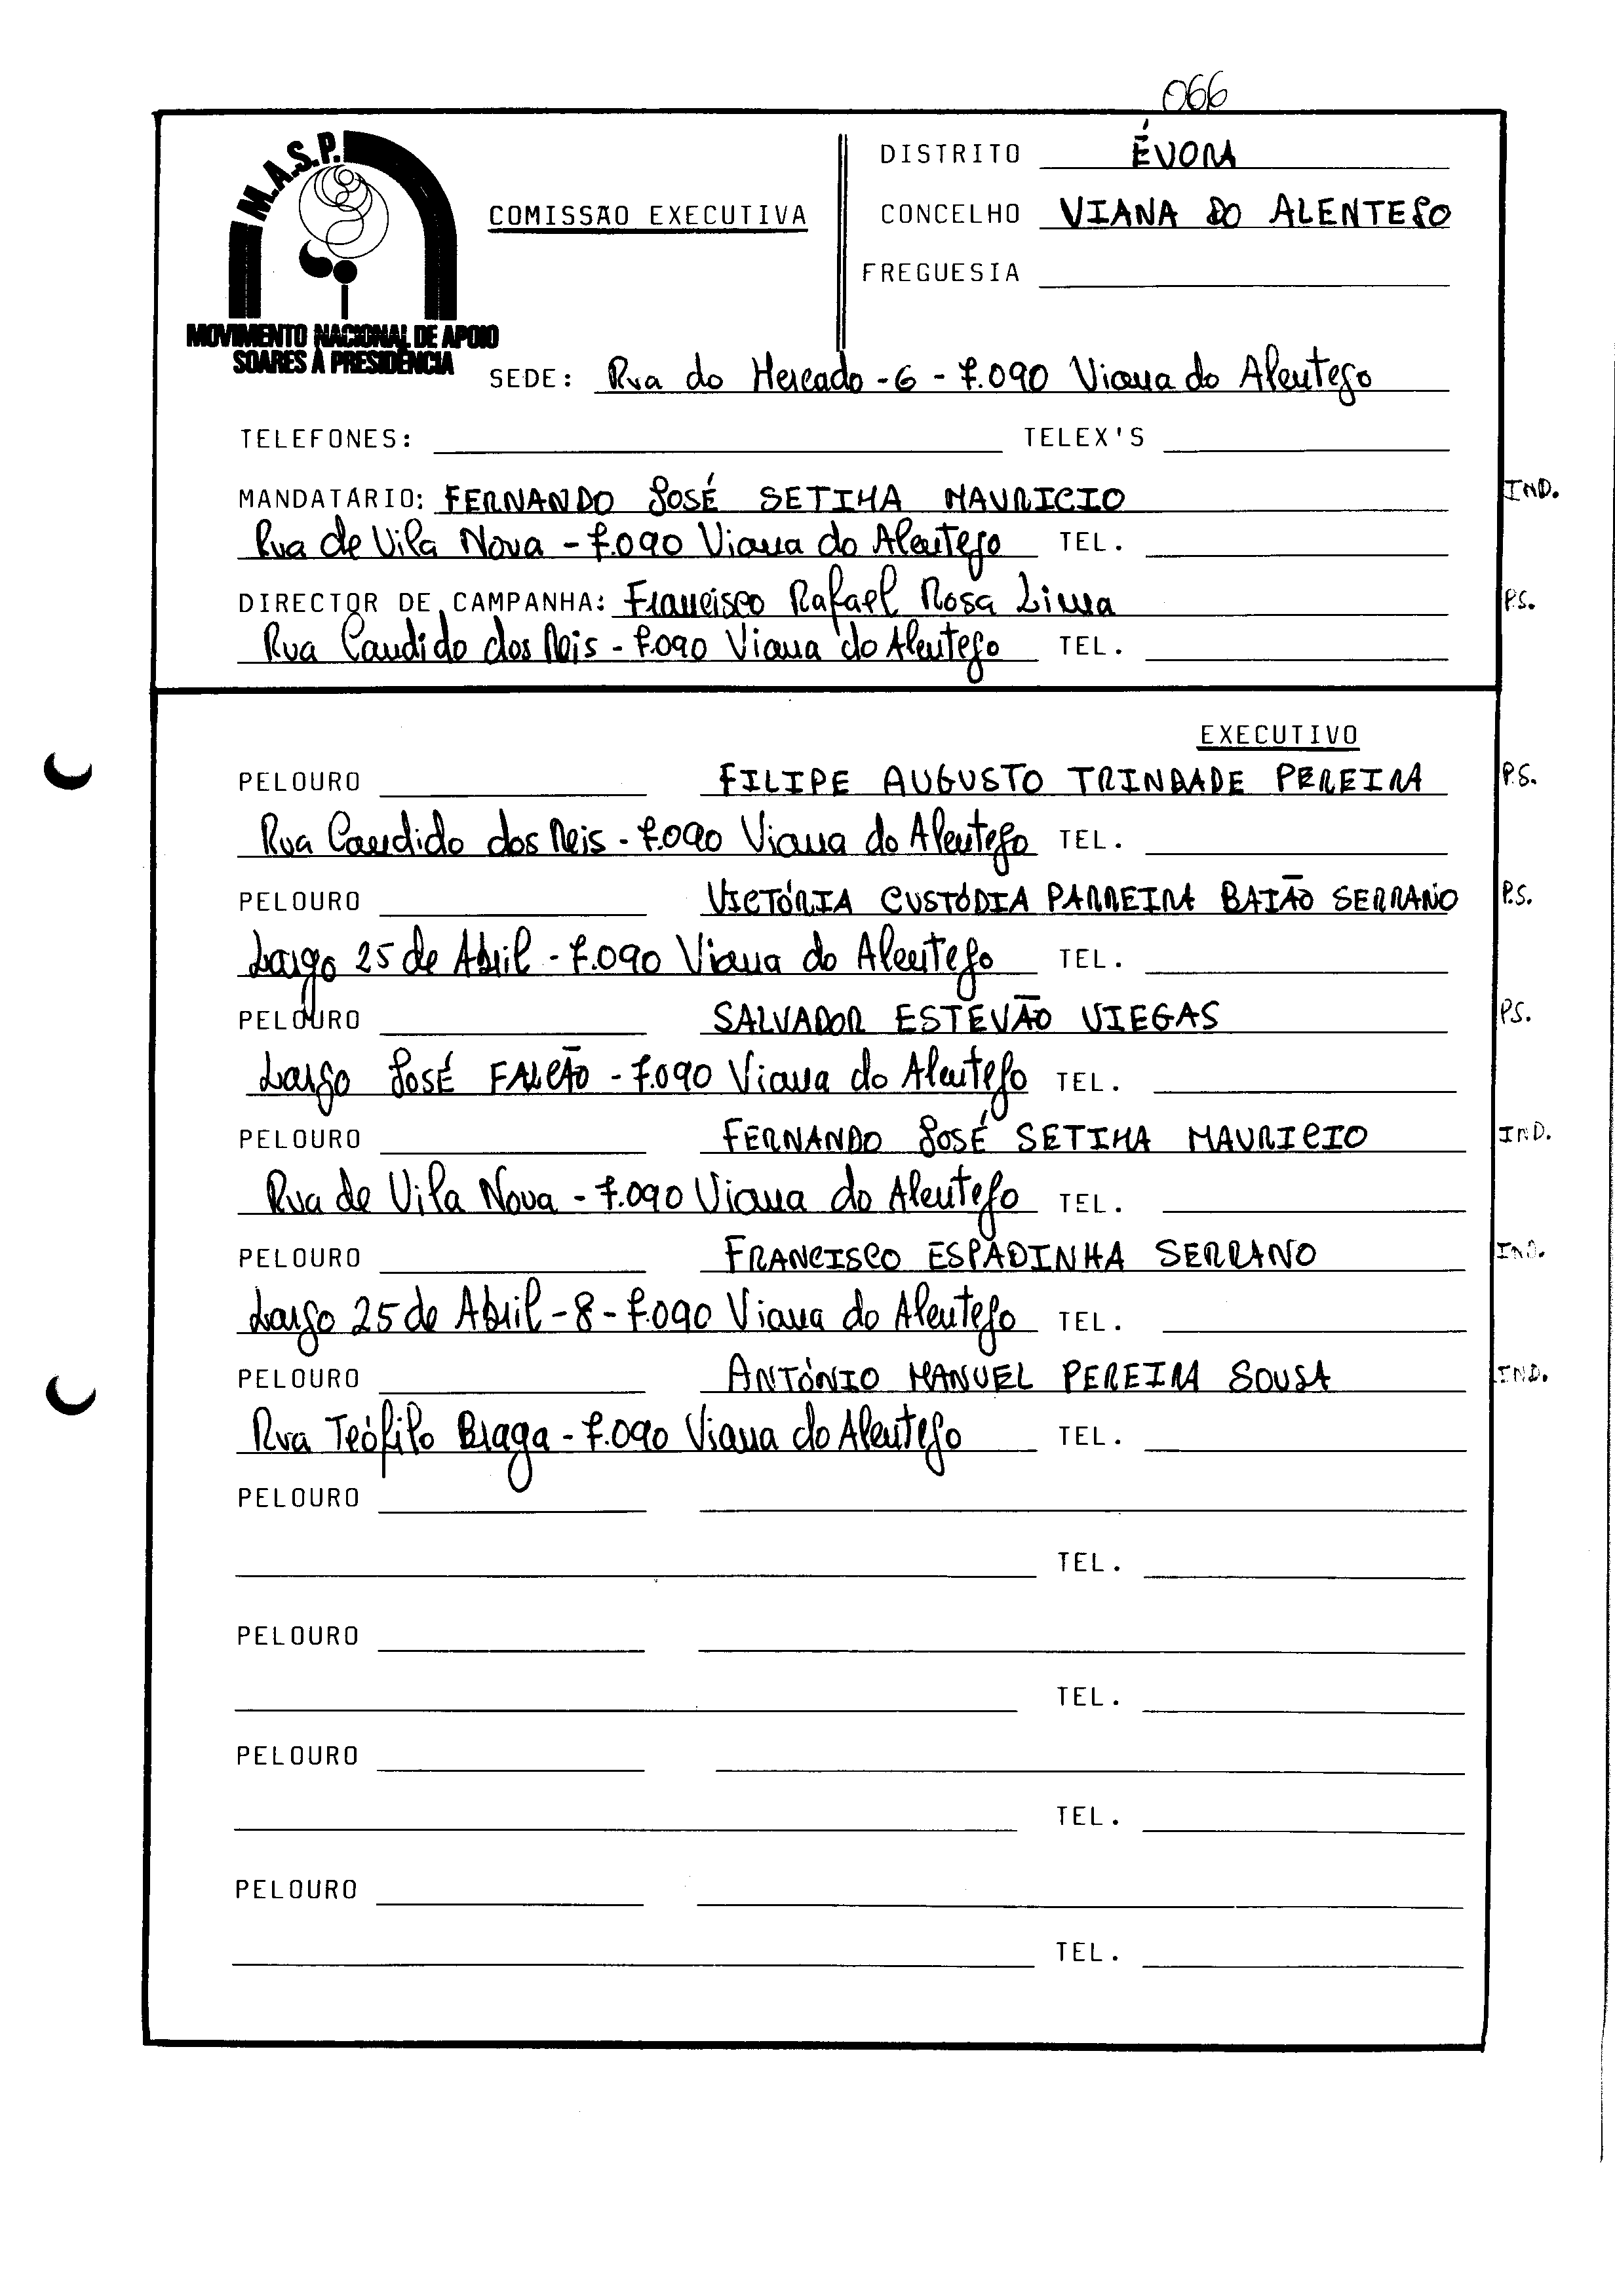 066
M.A.S.P.
MOVIMENTO NACIONAL DE APOIO
SOARES À PRESIDÊNCIA
COMISSÃO EXECUTIVA
DISTRITO ÉVORA
CONCELHO VIANA DO ALENTEJO
FREGUESIA
SEDE: Rua do Mercado - 6 - 7.090 Viana do Alentejo
TELEFONES: TELEX'S
MANDATÁRIO: FERNANDO JOSÉ SETIMA MAURICIO IND.
Rua de Vila Nova - 7.090 Viana do Alentejo TEL.
DIRECTOR DE CAMPANHA: Francisco Rafael Rosa Lima P.S.
Rua Candido dos Reis - 7.090 Viana do Alentejo TEL.
EXECUTIVO
PELOURO FILIPE AUGUSTO TRINDADE PEREIRA P.S.
Rua Candido dos Reis - 7.090 Viana do Alentejo TEL.
PELOURO VICTÓRIA CUSTÓDIA PARREIRA BAIÃO SERRANO P.S.
Largo 25 de Abril - 7.090 Viana do Alentejo TEL.
PELOURO SALVADOR ESTEVÃO VIEGAS P.S.
Largo JOSÉ FALCÃO - 7.090 Viana do Alentejo TEL.
PELOURO FERNANDO JOSÉ SETIMA MAURICIO IND.
Rua de Vila Nova - 7.090 Viana do Alentejo TEL.
PELOURO FRANCISCO ESPADINHA SERRANO IND.
Largo 25 de Abril - 8 - 7.090 Viana do Alentejo TEL.
PELOURO ANTÓNIO MANUEL PEREIRA SOUSA IND.
Rua Teófilo Braga - 7.090 Viana do Alentejo TEL.
PELOURO
TEL.
PELOURO
TEL.
PELOURO
TEL.
PELOURO
TEL.